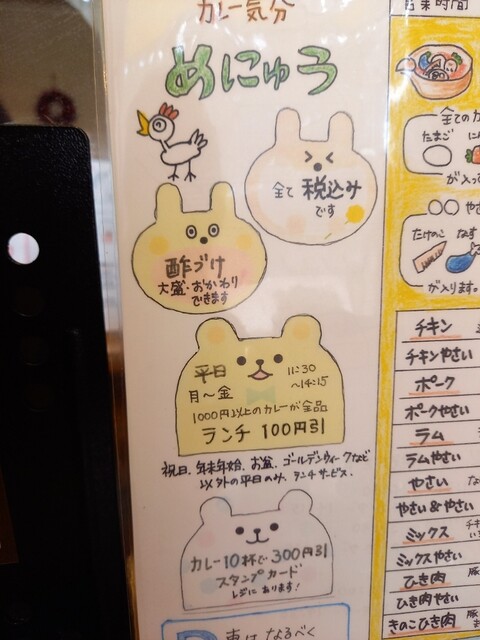 カレー気分
めにゅう
全て 税込み
です
酢づけ
大盛・おかわり
できます
平日 11:30
月〜金 〜14:15
1000円以上のカレーが全品
ランチ 100円引
祝日、年末年始、お盆、ゴールデンウィークなど
以外の平日のみ、ランチサービス.
カレー10杯で300円引
スタンプカード
レジにあります!
車はなるべく
営業時間
全ての
たまご
が入っ
〇〇やさ
たけのこ なす
が入ります。
チキン
チキンやさい
ポーク
ポークやさい
ラム
ラムやさい
やさい
やさい&やさい
ミックス
ミックスやさい
ひき肉
ひき肉やさい
きのこひき肉